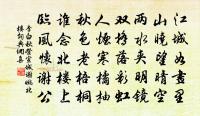 江城如畫裡
山曉望晴空
兩水夾明鏡
雙橋落彩虹
人烟寒橘柚
秋色老梧桐
誰念北樓上
臨風懷謝公
李白秋登宣城謝脁北